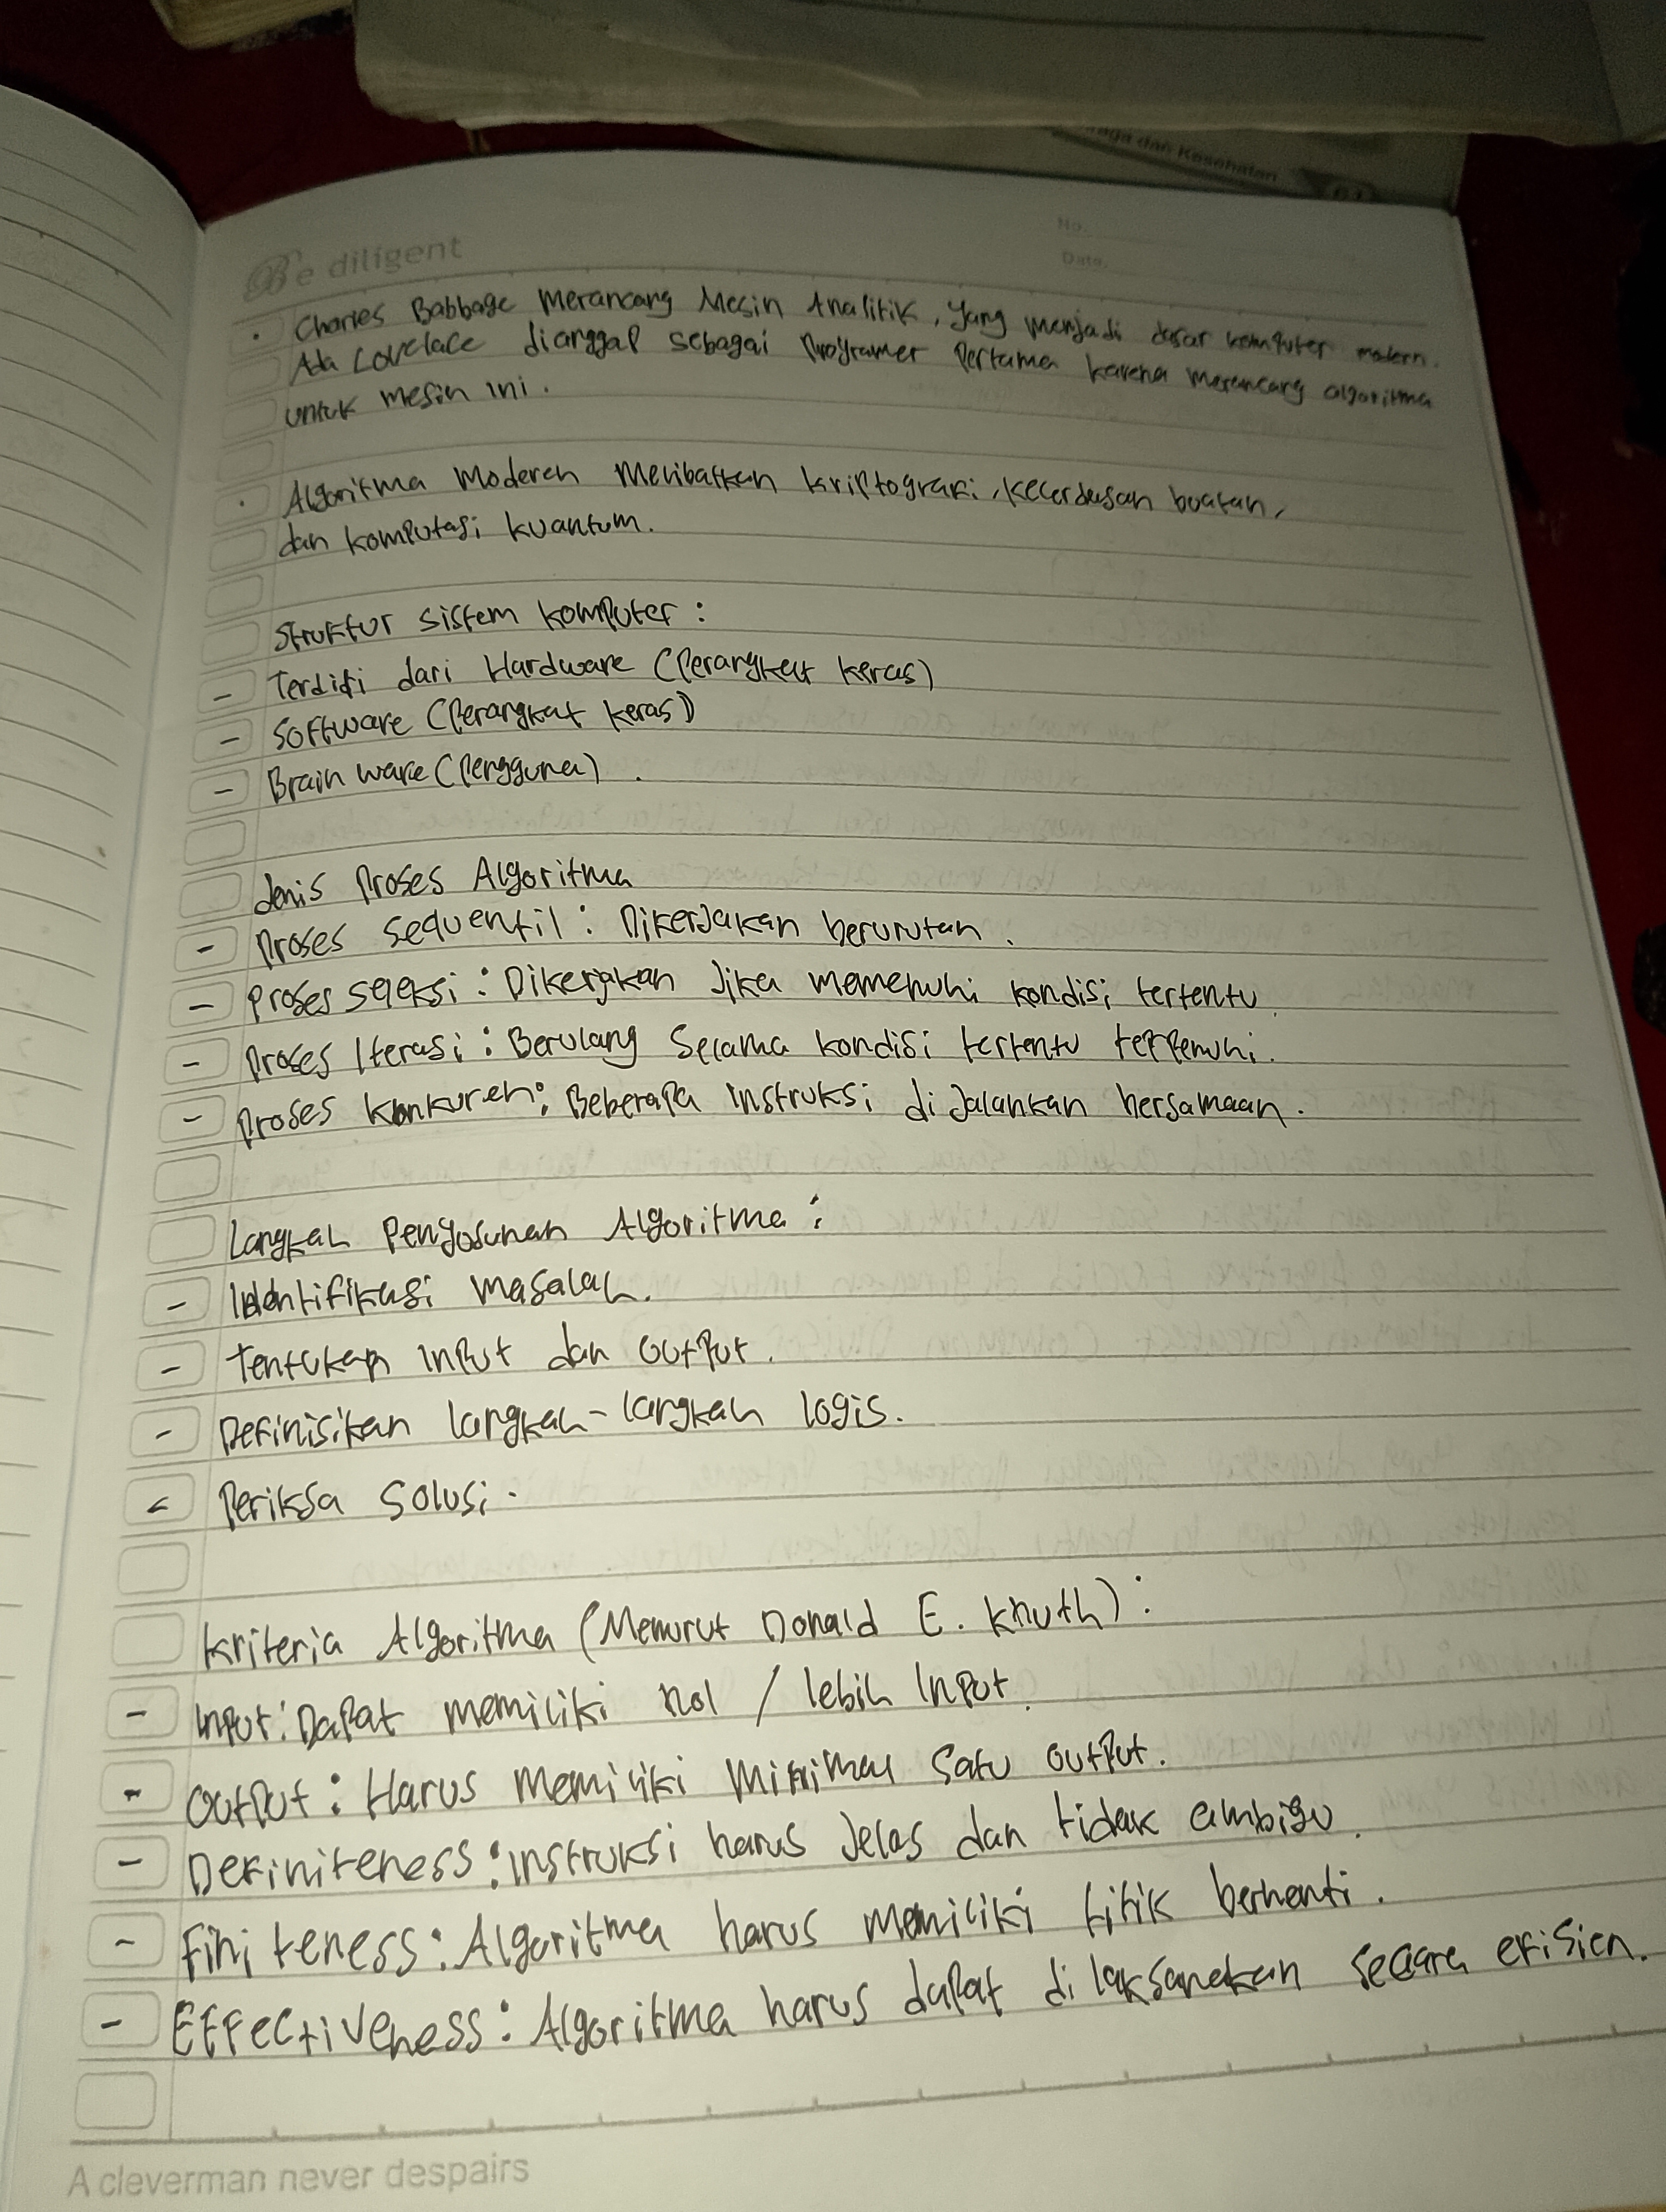 aga dan Kesehatan
Be diligent
No.
Date.
• Charles Babbage Merancang Mesin Analitik, yang menjadi dasar komputer modern.
Ada Lovelace dianggap sebagai Programer Pertama karena merancang algoritma
untuk mesin ini.
• Algoritma Moderen Melibatkan kriptografi, kecerdasan buatan,
dan komputasi kuantum.
Struktur sistem komputer :
- Terdiri dari Hardware (Perangkat keras)
- Software (Perangkat keras)
- Brain ware (Pengguna).
Jenis Proses Algoritma
- Proses Sequentil : Dikerjakan berurutan.
- Proses seleksi : Dikerjakan Jika memenuhi kondisi tertentu.
- Proses Iterasi : Berulang Selama kondisi tertentu terpenuhi.
- Proses konkuren : Beberapa instruksi di jalankan bersamaan.
Langkah Penyusunan Algoritma :
- Identifikasi masalah.
- Tentukan input dan output.
- Definisikan langkah-langkah logis.
- Periksa Solusi.
Kriteria Algoritma (Menurut Donald E. Knuth) :
- Input : Dapat memiliki nol / lebih Input.
- Output : Harus memiliki minimal satu output.
- Definiteness : instruksi harus Jelas dan tidak ambigu.
- Finiteness : Algoritma harus memiliki titik berhenti.
- Effectiveness : Algoritma harus dapat di laksanakan secara efisien.
A cleverman never despairs